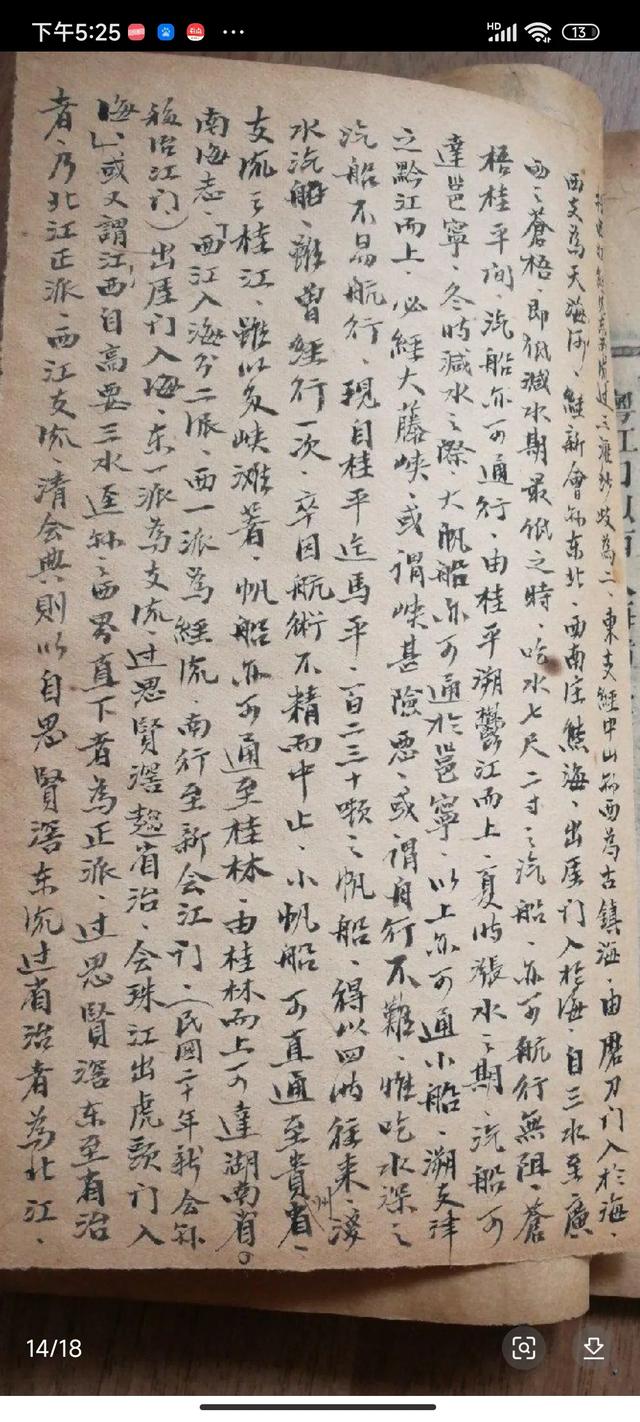 下午5:25
HD
13
過三灘外歧為二、東支經中山縣西為古鎮海、由磨刀门入於海、
西支為天海河、經新會縣东北、西南注熊海、出厓门入於海、自三水至廣
西之蒼梧、即低減水期最低之時、吃水七尺二寸之汽船、亦可航行無阻、蒼
梧桂平间、汽船亦可通行、由桂平溯鬱江而上、夏时漲水之期、汽船可
達邕寧、冬时減水之際、大帆船亦可通於邕寧、以上亦可通小船、溯支津
之黔江而上、必經大藤峡、或谓峡甚險惡、或谓舟行不難、惟吃水深之
汽船不易航行、現自桂平迄馬平、一百二三十噸之帆船、得以四时往来、淺
水汽船、雖曾經行一次、卒因航術不精而中止、小帆船可直通至貴州省、
支流之桂江、雖以多峡滩著、帆船亦可通至桂林、由桂林而上可達湖南省。
南海志、「西江入海分二派、西一派為經流、南行至新会江门、（民國二十年新会縣
治江门）出厓门入海、东一派為支流、过思賢滘趨省治、会珠江出虎頭门入
海」、或又謂西江自高要三水边縣之西界直下者為正派、过思賢滘东至省治
者、乃北江正派、西江支流、清会典則以自思賢滘东流过省治者為北江、
14/18